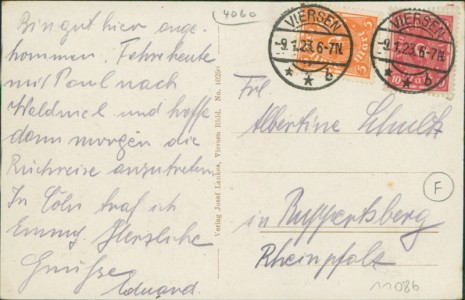 Bin gut hier ange-
kommen. Fahre heute
mit Paul nach
Waldniel und hoffe
dann morgen die
Rückreise anzutreten.
In Cöln traf ich
Emmy. Herzliche
Grüße
Eduard.
4060
VIERSEN
-9.1.23.6-7N.
* * b
VIERSEN
-9.1.23.6-7N.
* * b
5
Verlag Josef Lankes, Viersen Rhld. No.
Frl
Albertine Schultz
in Ruppertsberg
Rheinpfalz
F
11086